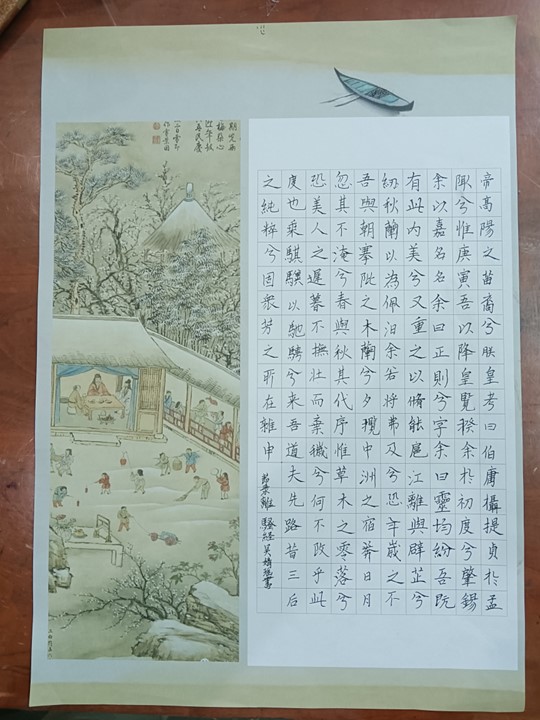 帝高陽之苗裔兮朕皇考曰伯庸攝提貞於孟
陬兮惟庚寅吾以降皇覽揆余於初度兮肇錫
余以嘉名名余曰正則兮字余曰靈均紛吾既
有此內美兮又重之以脩能扈江離與辟芷兮
紉秋蘭以為佩汨余若將弗及兮恐年歲之不
吾與朝搴阰之木蘭兮夕攬中洲之宿莽日月
忽其不淹兮春與秋其代序惟草木之零落兮
恐美人之遲暮不撫壯而棄穢兮何不改乎此
度也乘騏驥以馳騁兮來吾道夫先路昔三后
之純粹兮固衆芳之所在雜申
離騷經吳書